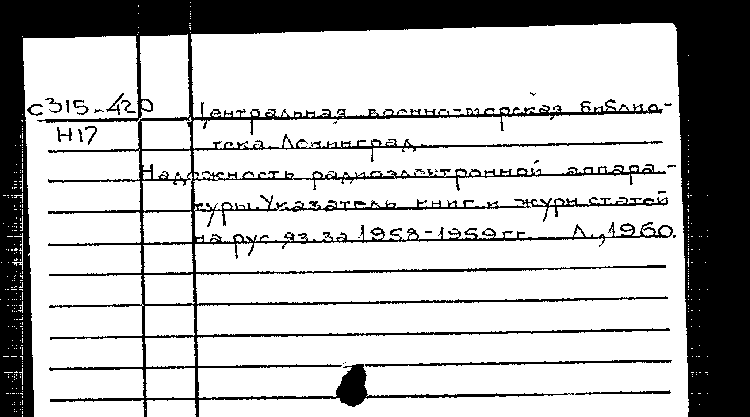 С315-420 Центральная военно-морская библио-
Н17 тека. Ленинград.
Надежность радиоэлектронной аппара-
туры. Указатель книг и журн. статей
на рус. яз. за 1958-1959 гг. Л., 1960.